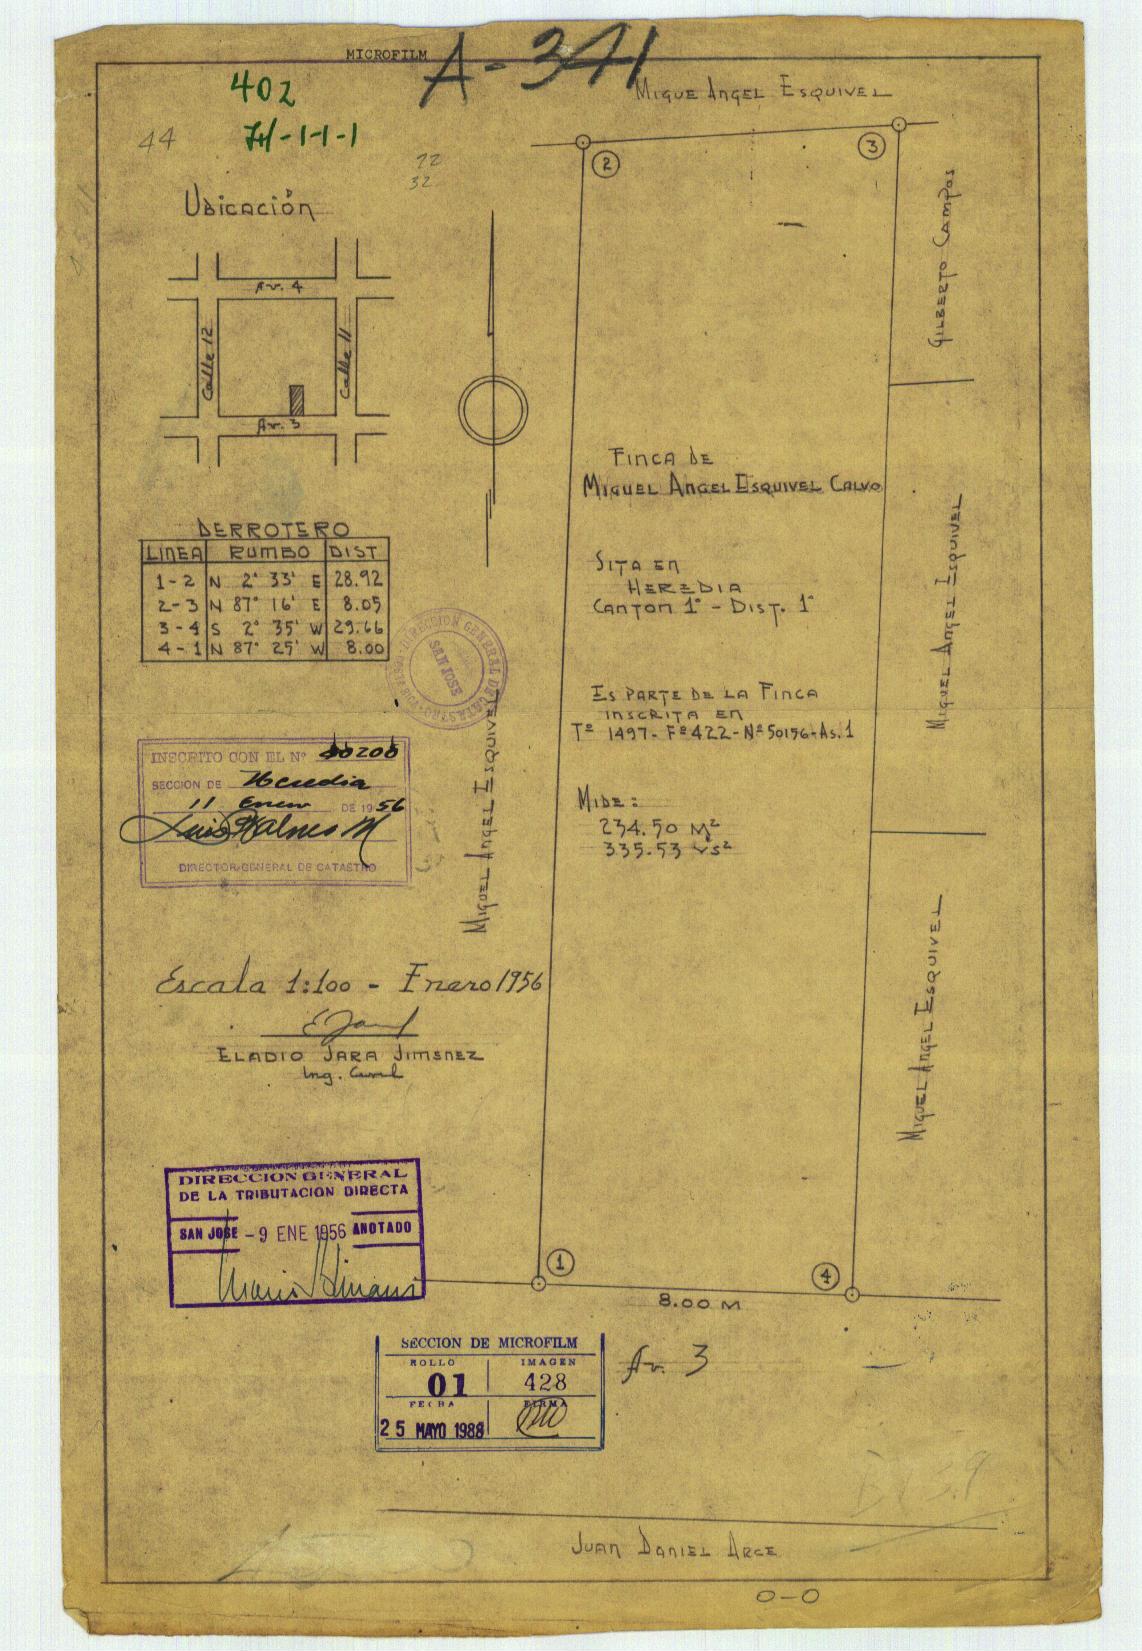 MICROFILM
A-341
402
H-1-1-1
44
72
32
MIGUE ANGEL ESQUIVEL
2
3
UBICACIÓN
Av. 4
Calle 12
Calle 11
Av. 3
GILBERTO CAMPOS
FINCA DE
MIGUEL ANGEL ESQUIVEL CALVO
SITA EN
HEREDIA
CANTON 1° - DIST. 1°
DERROTERO
LINEA RUMBO DIST
1-2 N 2° 33' E 28.92
2-3 N 87° 16' E 8.05
3-4 S 2° 35' W 29.66
4-1 N 87° 25' W 8.00
DIRECCION GENERAL DE CATASTRO
SAN JOSE
MIGUEL ANGEL ESQUIVEL
ES PARTE DE LA FINCA
INSCRITA EN
T° 1497- F° 422- N° 50196-As.1
MIDE:
234.50 M²
335.53 vs²
INSCRITO CON EL N°
SECCION DE Heredia
11 Enero DE 1956
DIRECTOR GENERAL DE CATASTRO
MIGUEL ANGEL ESQUIVEL
MIGUEL ANGEL ESQUIVEL
Escala 1:100 - Enero 1956
ELADIO JARA JIMENEZ
Ing. Civil
DIRECCION GENERAL
DE LA TRIBUTACION DIRECTA
SAN JOSE - 9 ENE 1956 ANOTADO
1
4
8.00 M
Av. 3
SECCION DE MICROFILM
ROLLO IMAGEN
01 428
FECHA FIRMA
25 MAYO 1988
JUAN DANIEL ARCE
0-0